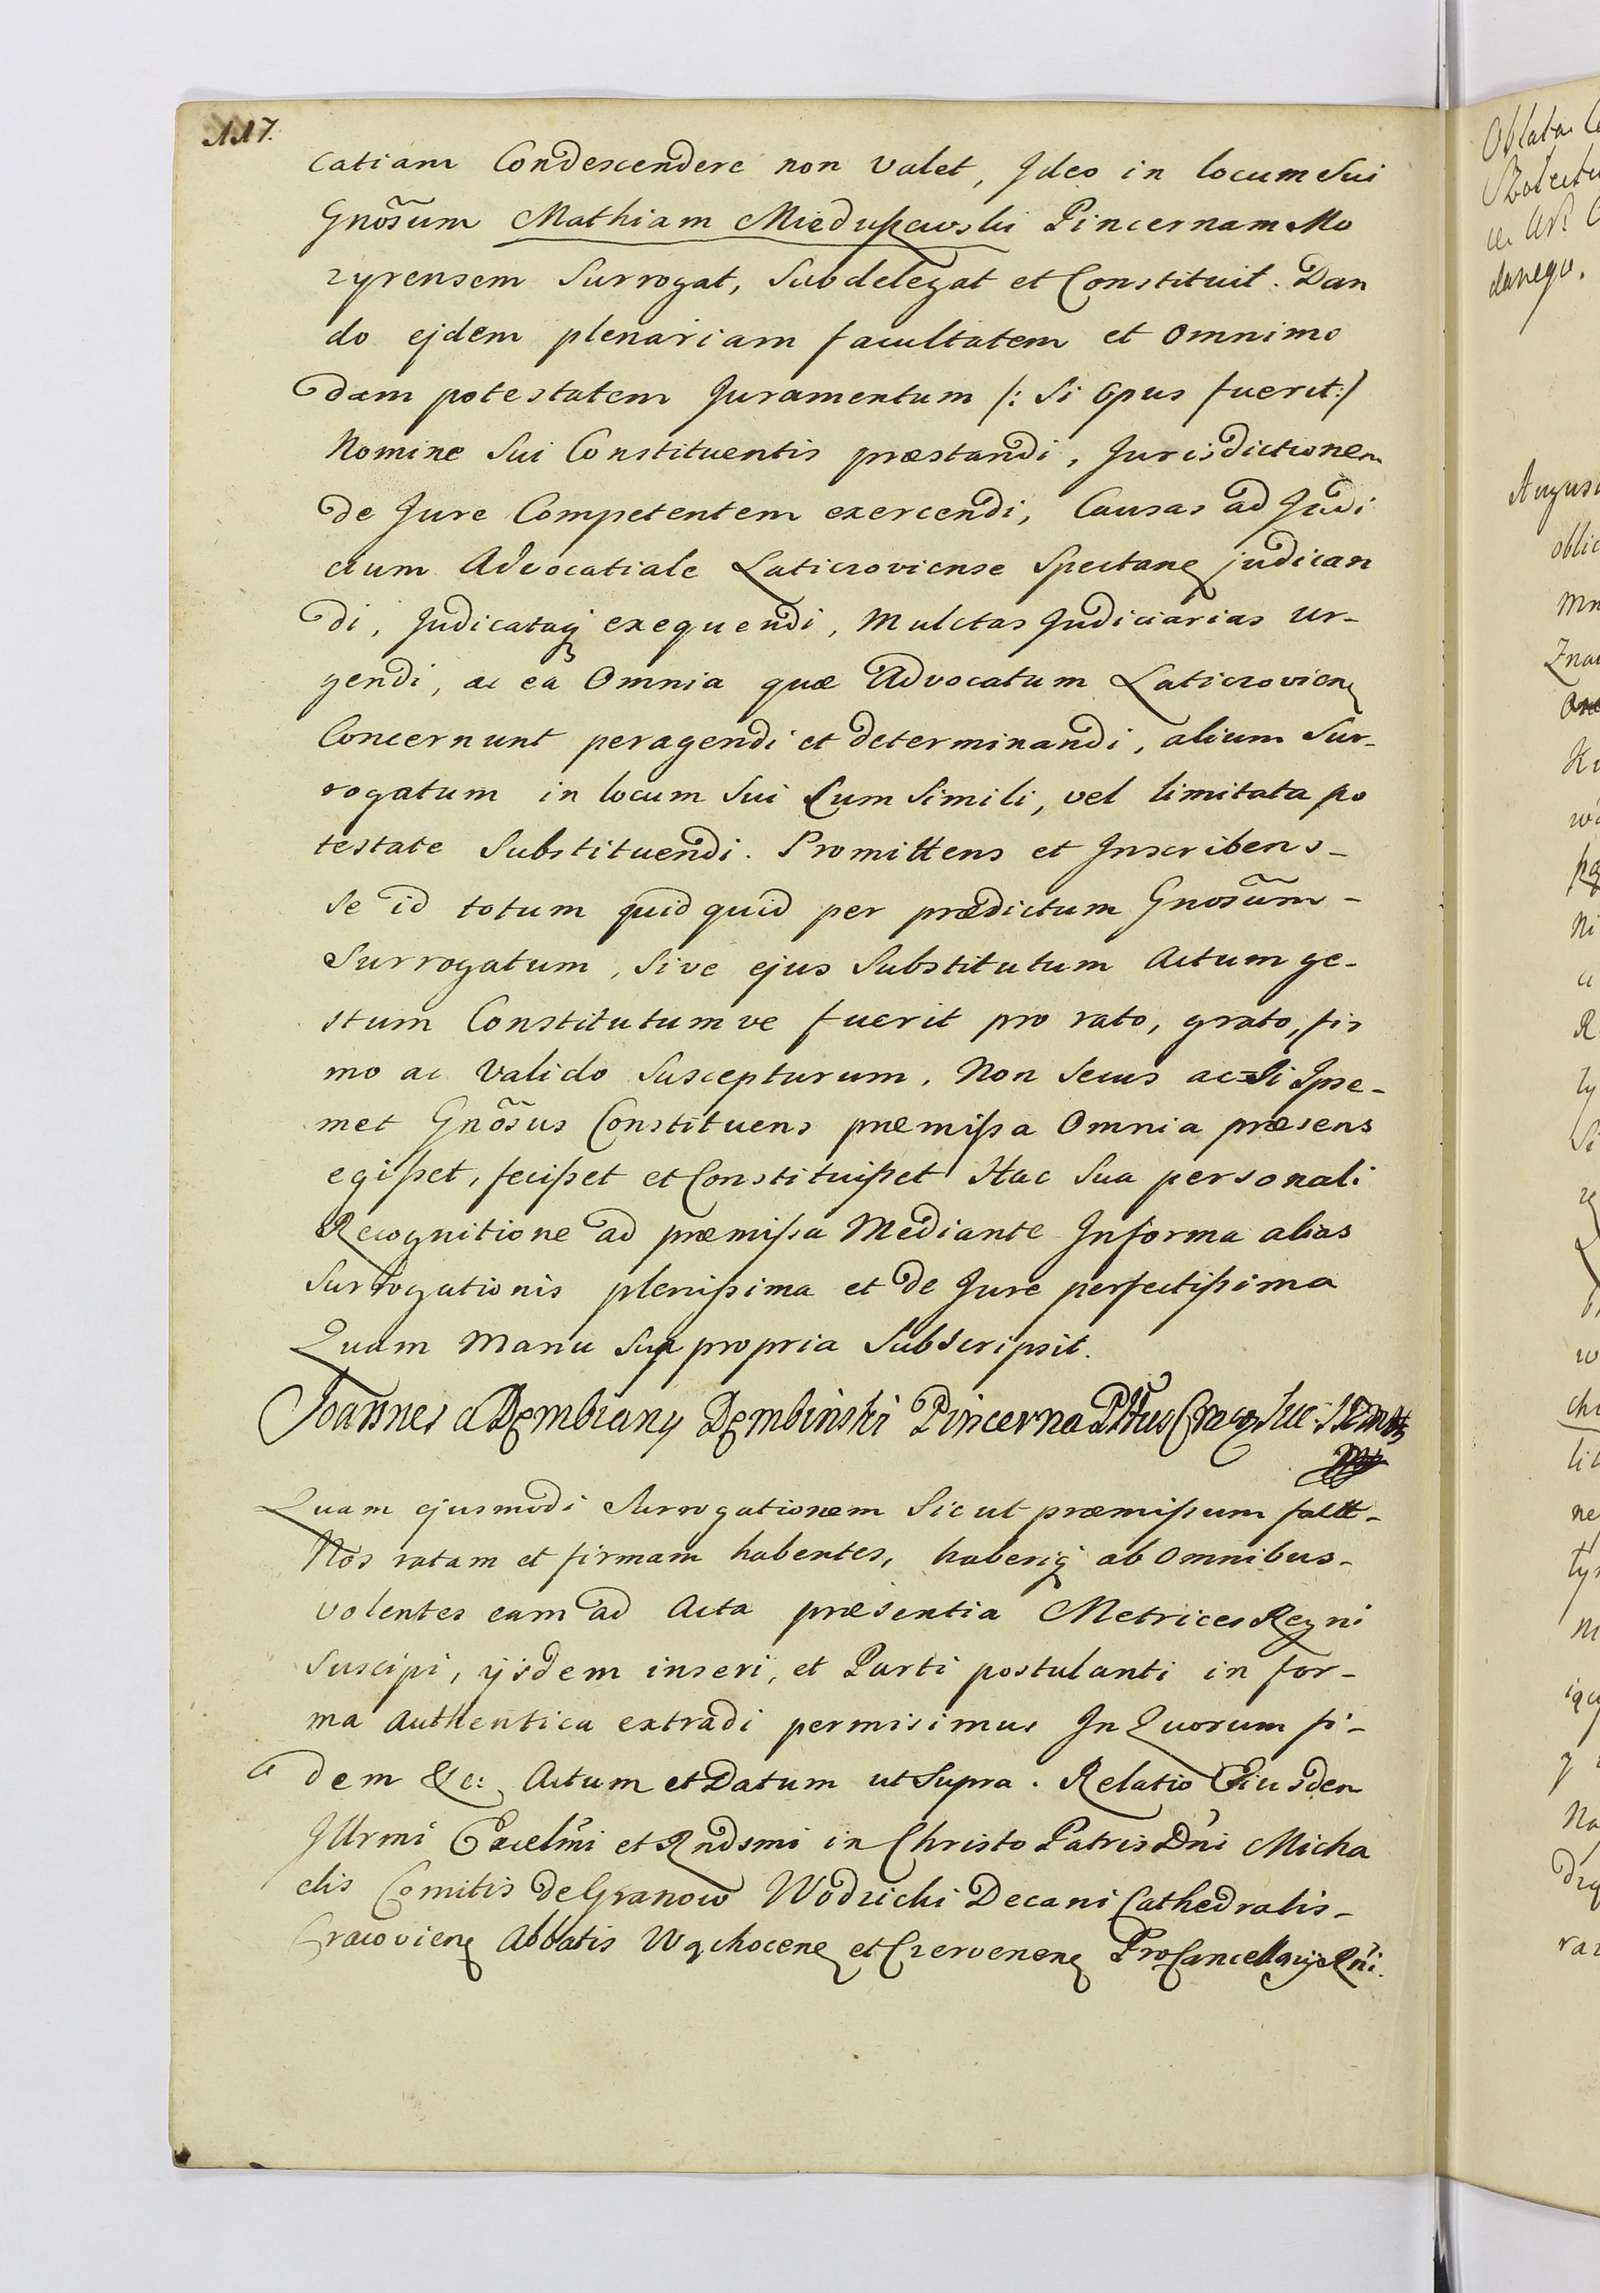 117.
catiam Condescendere non valet, Ideo in locum Sui
Gnõsum Mathiam Mieduszewski Pincernam Mo
zyrensem Surrogat, Subdelegat et Constituit. Dan
do ejdem plenariam facultatem et omnimo
dam potestatem Juramentum /: Si Opus fuerit:/
Nomine Sui Constituentis præstandi, Jurisdictionem
de Jure Competentem exercendi, Causas ad Judi
cium Advocatiale Laticzoviense Spectanę judican
di, Judicataq exequendi, Mulctas Judiciarias Ur-
gendi, ac ea Omnia quæ Advocatum Laticzovienę
Concernunt peragendi et determinandi, alium Sur-
rogatum in locum Sui Cum Simili, vel limitata po
testate Substituendi. Promittens et Inscribens-
Se id totum quid quid per prædictum Gnosũm-
Surrogatum, Sive ejus Substitutum Actum ge-
stum Constitutumve fuerit pro rato, grato, fir
mo ac Valido Suscepturum, Non Secus ac Si Ipse-
met Gnõsus Constituens præmißa Omnia præsens
egißet, fecißet et Constituißet Hac Sua personali
Recognitione ad præmißa Mediante Informa alias
Surrogationis plenißima et de Jure perfectißima
Quam Manu Sua propria Subscripsit.
Joannes a Dembiany Dembinski Pincerna Pttus
Quam ejusmodi Surrogationem Sicut præmißum
Nos ratam et firmam habentes, haberiq ab Omnibus-
volentes eam ad Acta præsentia Metrices Regni
Suscipi, ijsdem inseri, et Parti postulanti in for-
ma Authentica extradi permisimus In Quorum fi-
dem &c: Actum et Datum ut Supra. Relatio Ejusdem
Illrmi Excelmi et Rndsmi in Christo Patris Dńi Micha
elis Comitis de Granow Wodzicki Decani Cathedralis-
Cracovienę Abbatis Wąchocenę et Czervenenę ProCancellarij Rńi.